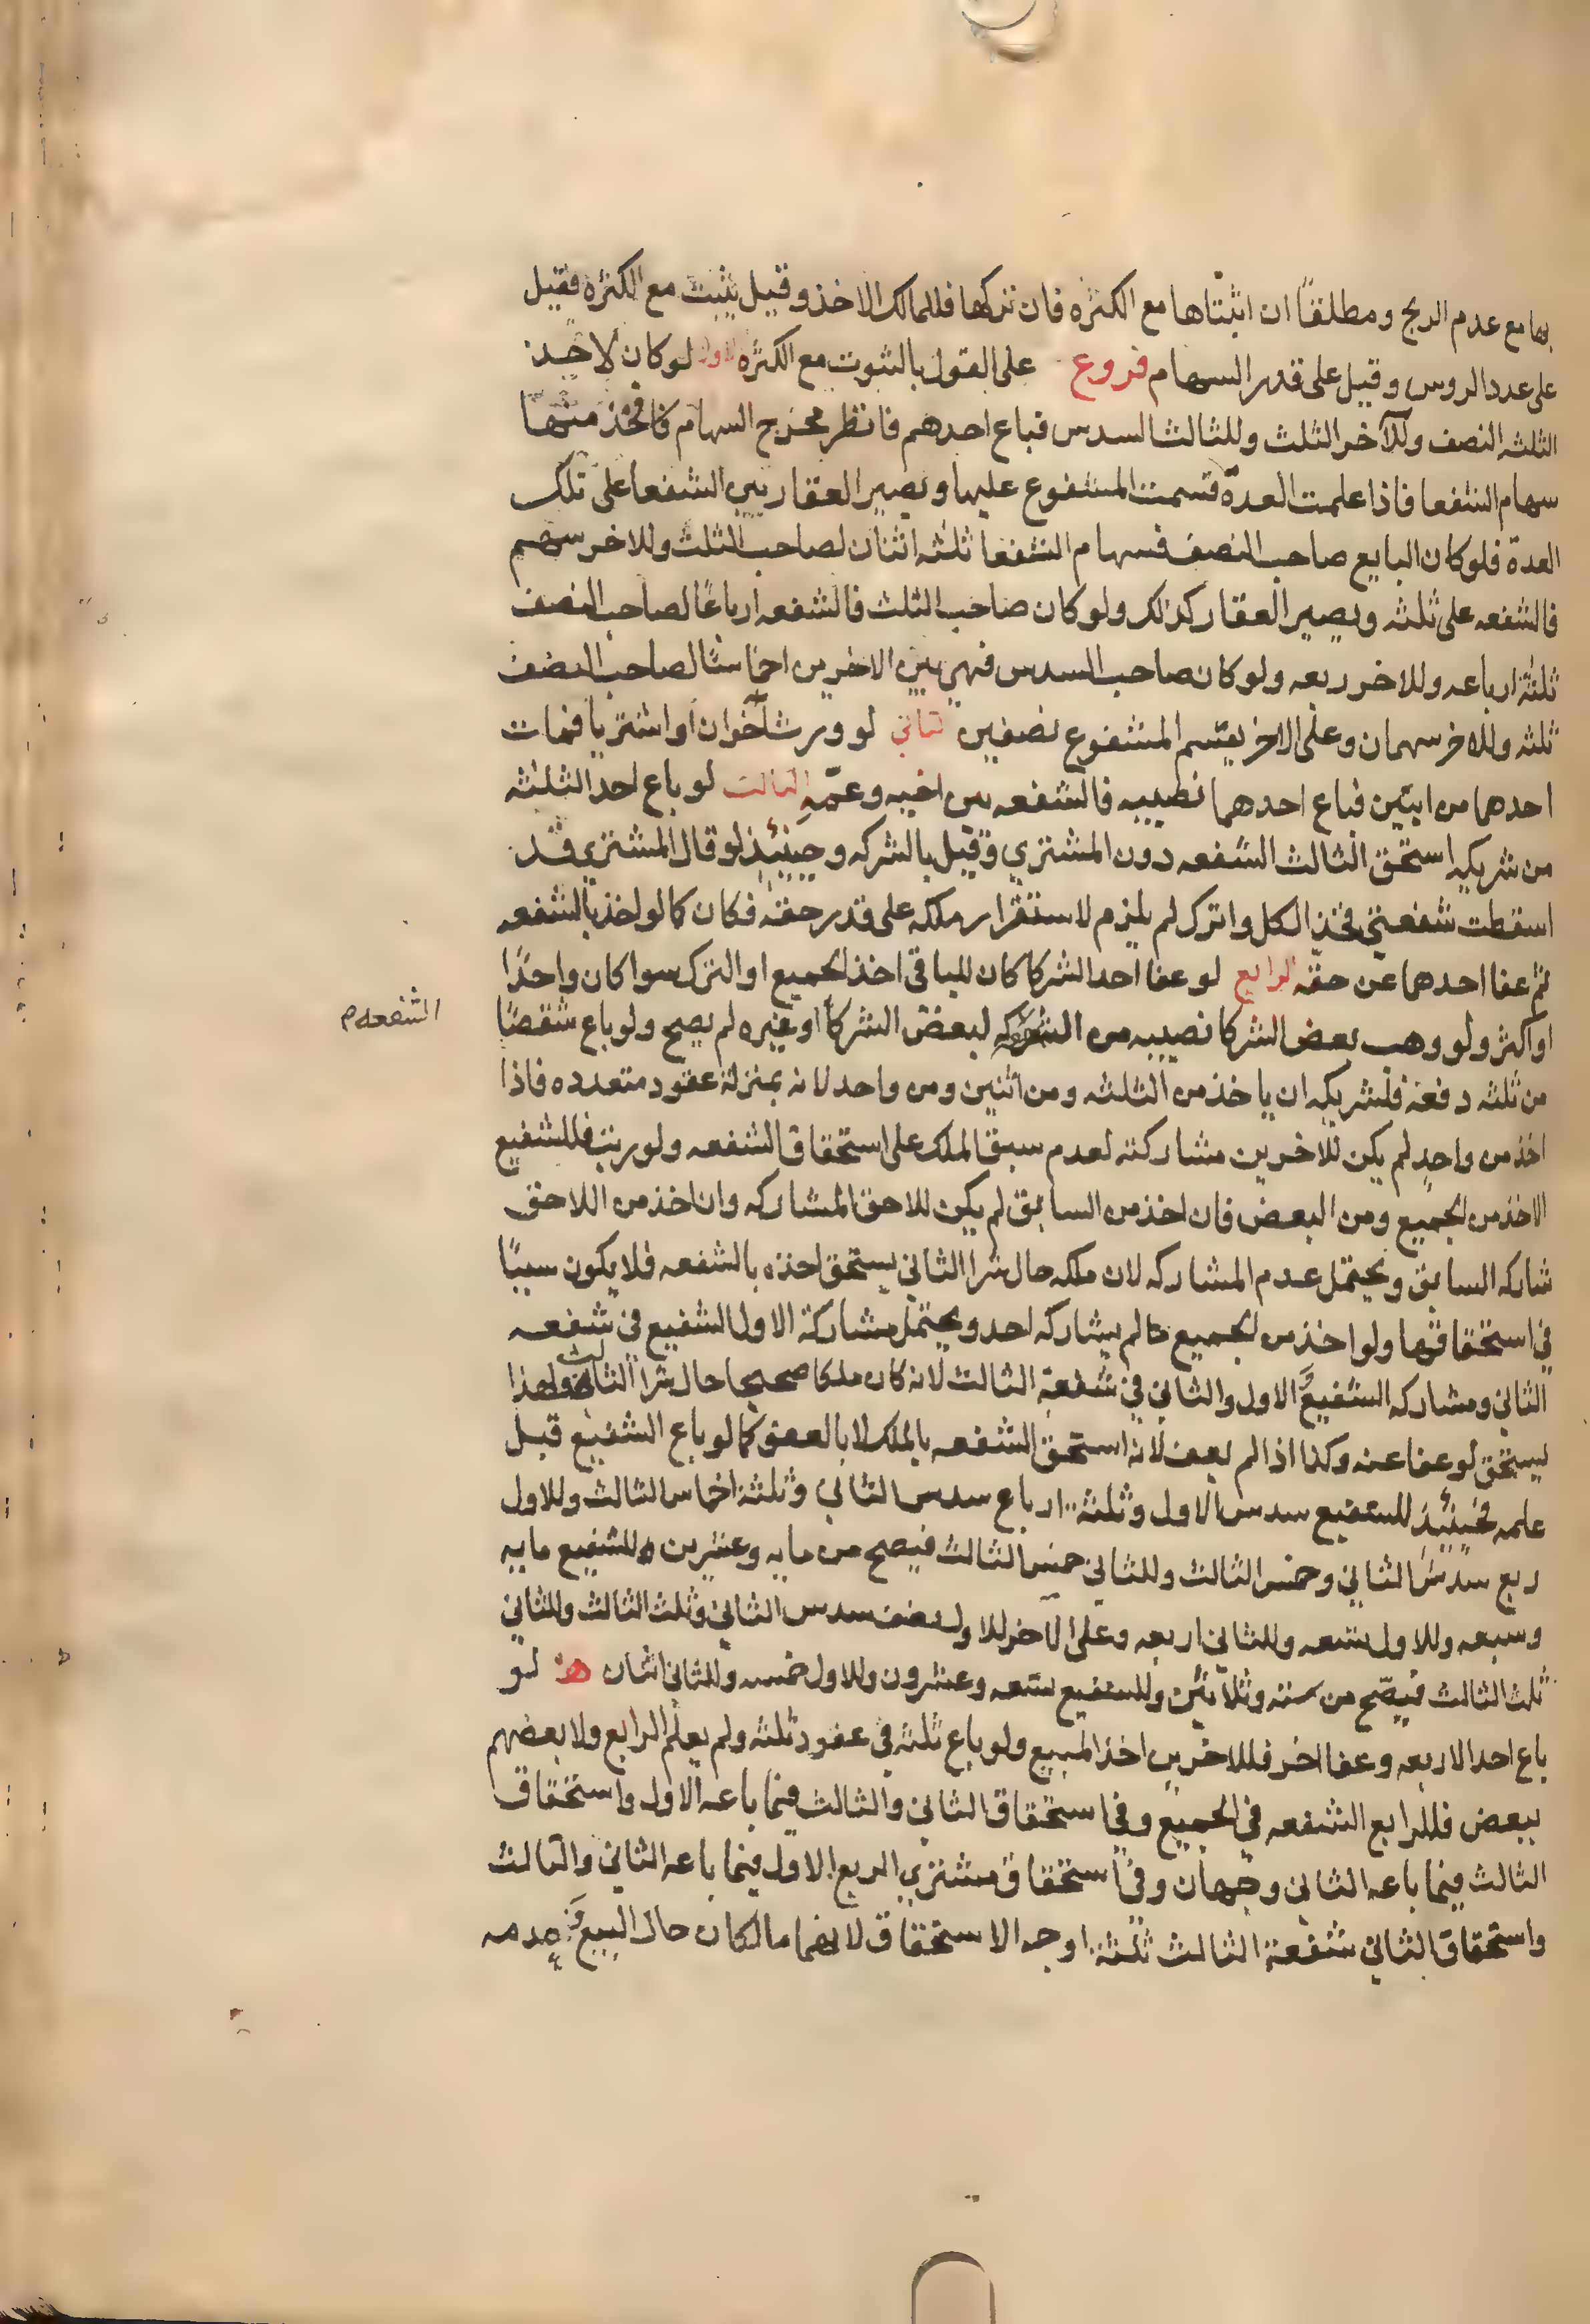 بها مع عدم الربح ومطلقًا ان اثبتناها مع الكثره فان تركها فللمالك الاخذ وقيل يثبت مع الكثره فقيل
على عدد الروس وقيل على قدر السهام فروع على القول بالثبوت مع الكثره الاول لو كان لاحد
الثلثه النصف وللآخر الثلث وللثالث السدس فباع احدهم فانظر مخرج السهام فخذ منها
سهام الشفعا فاذا علمت العدة قسمت المشفوع عليها ويصير العقار بين الشفعا على تلك
العدة فلو كان البايع صاحب النصف فسهام الشفعا ثلثه اثنان لصاحب الثلث وللاخر سهم
فالشفعه على ثلثه ويصير العقار كذلك ولو كان صاحب الثلث فالشفعه ارباعًا لصاحب النصف
ثلثة ارباعه وللاخر ربعه ولو كان صاحب السدس فهي بين الاخرين اخماسًا لصاحب النصف
ثلثه وللاخر سهمان وعلى الاخر يقسم المشفوع نصفين الثاني لو ورث اخوان او اشتريا فمات
احدهما عن ابنين فباع احدهما نصيبه فالشفعه بين اخيه وعمه الثالث لو باع احد الثلثه
من شريكه استحق الثالث الشفعه دون المشتري وقيل بالشركه وحينئذ لو قال المشتري قد
اسقطت شفعتي فخذ الكل واترك لم يلزم لاستقرار ملكه على قدر حقه فكان كما لو اخذ بالشفعه
ثم عفا احدهما عن حقه الرابع لو عفا احد الشركا كان للباقي اخذ الجميع او الترك سوا كان واحدًا
او اكثر ولو وهب بعض الشركا نصيبه من لبعض الشركا او غيره لم يصح ولو باع شقصًا
الشفعه م
من ثلثه دفعة فلشريكه ان ياخذ من الثلثه ومن اثنين ومن واحد لانه بمنزلة عقود متعدده فاذا
اخذ من واحد لم يكن للاخرين مشاركته لعدم سبق الملك على استحقاق الشفعه ولو رتب فللشفيع
الاخذ من الجميع ومن البعض فان اخذ من السابق لم يكن للاحق المشاركه وان اخذ من اللاحق
شاركه السابق ويحتمل عدم المشاركه لان ملكه حال شرا الثاني يستحق اخذه بالشفعه فلا يكون سببًا
في استحقاقها ولو اخذ من الجميع لم يشاركه احد ويحتمل مشاركة الاول الشفيع في شفعه
الثاني ومشاركه الشفيع الاول والثاني في شفعة الثالث لانه كان ملكا صحيحا حال شرا الثالث ولهذا
يستحق لو عفا عنه وكذا اذا لم يعف لانه استحق الشفعه بالملك لا بالعفو كما لو باع الشفيع قبل
علمه فحينئذ للشفيع سدس الاول وثلثه ارباع سدس الثاني وثلثة اخماس الثالث وللاول
ربع سدس الثاني وخمس الثالث وللثاني خمس الثالث فيصح من مايه وعشرين للشفيع مايه
وسبعه وللاول تسعه وللثاني اربعه وعلى الآخر للاول نصف سدس الثاني وثلث الثالث وللثاني
ثلث الثالث فيصح من سته وثلاثين وللشفيع تسعه وعشرون وللاول خمسه وللثاني اثنان ه لو
باع احد الاربعه وعفا اخر فللاخرين اخذ المبيع ولو باع ثلثه في عقود ثلثه ولم يعلم الرابع ولا بعضهم
ببعض فللرابع الشفعه في الجميع وفي استحقاق الثاني والثالث فيما باعه الاول واستحقاق
الثالث فيما باعه الثاني وجهان وفي استحقاق مشتري الربع الاول فيما باعه الثاني والثالث
واستحقاق الثاني شفعة الثالث ثلثة اوجه الاستحقاق لانهما مالكان حال البيع وعدمه